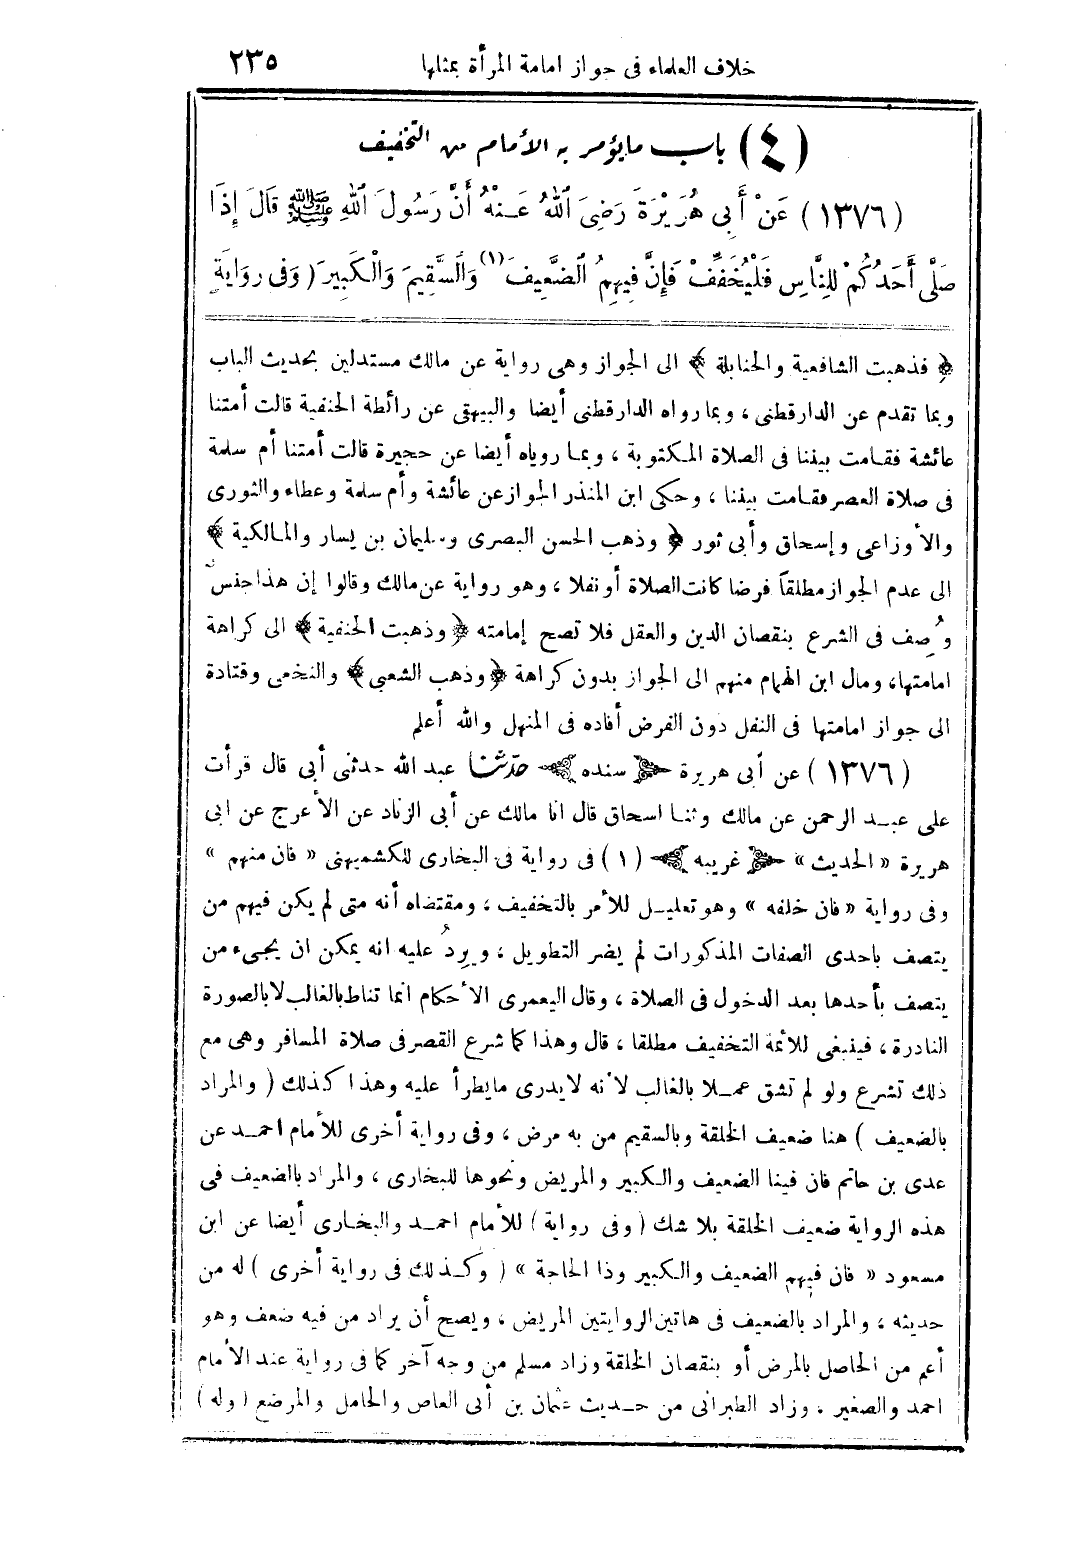 خلاف العلماء فى جواز امامة المرأة بمثلها ٢٣٥
(٤) باب ما يؤمر به الأمام من التخفيف
(١٣٧٦) عَنْ أَبِى هُرَيْرَةَ رَضِىَ اللهُ عَنْهُ أَنَّ رَسُولَ اللهِ ﷺ قَالَ إِذَا
صَلَّى أَحَدُكُمْ لِلنَّاسِ فَلْيُخَفِّفْ فَإِنَّ فِيهِمُ الضَّعِيفَ (١) وَالسَّقِيمَ وَالْكَبِيرَ (وَفِى رِوَايَةٍ
﴿ فذهبت الشافعية والحنابلة ﴾ الى الجواز وهى رواية عن مالك مستدلين بحديث الباب
وبما تقدم عن الدارقطنى ، وبما رواه الدارقطنى أيضا والبيهقى عن رائطة الحنفية قالت أمتنا
عائشة فقامت بيننا فى الصلاة المكتوبة ، وبما روياه أيضا عن حجيرة قالت أمتنا أم سلمة
فى صلاة العصر فقامت بيننا ، وحكى ابن المنذر الجواز عن عائشة وأم سلمة وعطاء والثورى
والأوزاعى وإسحاق وأبى ثور ﴿ وذهب الحسن البصرى وسليمان بن يسار والمالكية ﴾
الى عدم الجواز مطلقاً فرضا كانت الصلاة أو نفلا ، وهو رواية عن مالك وقالوا إن هذا جنس
وُصِف فى الشرع بنقصان الدين والعقل فلا تصح إمامته ﴿ وذهبت الحنفية ﴾ الى كراهة
امامتها، ومال ابن الهمام منهم الى الجواز بدون كراهة ﴿ وذهب الشعبى ﴾ والنخعى وقتادة
الى جواز امامتها فى النفل دون الفرض أفاده فى المنهل والله أعلم
(١٣٧٦) عن أبى هريرة سنده حدّثنا عبد الله حدثنى أبى قال قرأت
على عبد الرحمن عن مالك وثنا اسحاق قال انا مالك عن أبى الزناد عن الأعرج عن ابى
هريرة « الحديث » غريبه (١) فى رواية فى البخارى للكشميهنى « فان منهم »
وفى رواية « فان خلفه » وهو تعليل للأمر بالتخفيف ، ومقتضاه أنه متى لم يكن فيهم من
يتصف باحدى الصفات المذكورات لم يضر التطويل ، ويرِدُ عليه انه يمكن ان يجىء من
يتصف بأحدها بعد الدخول فى الصلاة ، وقال اليعمرى الأحكام انما تناط بالغالب لا بالصورة
النادرة ، فينبغى للائمة التخفيف مطلقا ، قال وهذا كما شرع القصر فى صلاة المسافر وهى مع
ذلك تشرع ولو لم تشق عملا بالغالب لأنه لا يدرى ما يطرأ عليه وهذا كذلك (والمراد
بالضعيف) هنا ضعيف الخلقة وبالسقيم من به مرض ، وفى رواية أخرى للأمام احمد عن
عدى بن حاتم فان فينا الضعيف والكبير والمريض ونحوها للبخارى ، والمراد بالضعيف فى
هذه الرواية ضعيف الخلقة بلا شك (وفى رواية) للأمام احمد والبخارى أيضا عن ابن
مسعود « فان فيهم الضعيف والكبير وذا الحاجة » (وكذلك فى رواية أخرى) له من
حديثه ، والمراد بالضعيف فى هاتين الروايتين المريض ، ويصح أن يراد من فيه ضعف وهو
أعم من الحاصل بالمرض أو بنقصان الخلقة وزاد مسلم من وجه آخر كما فى رواية عند الأمام
احمد والصغير . وزاد الطبرانى من حديث عثمان بن أبى العاص والحامل والمرضع (وله)